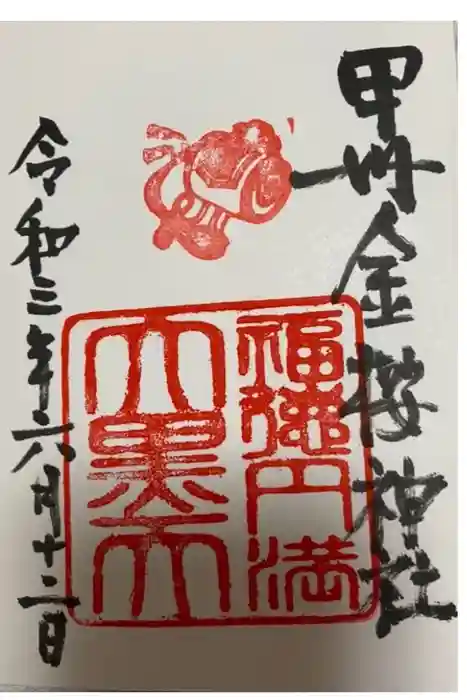 甲州金櫻神社
福徳円満
大黒天
令和三年六月十二日